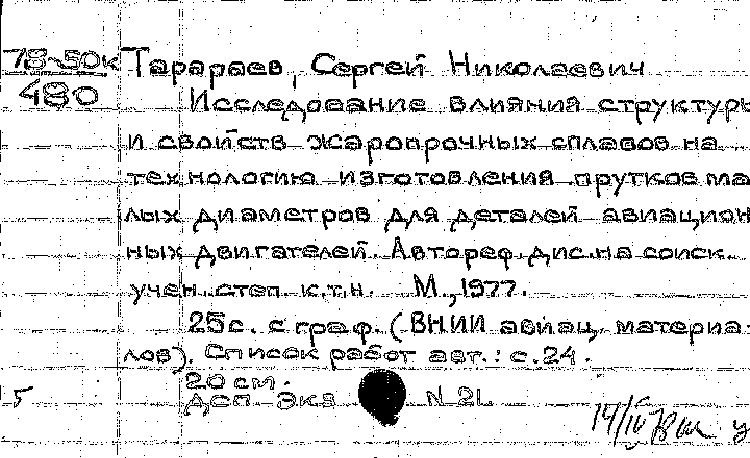 78-50к Тарараев, Сергей Николаевич
480 Исследование влияния структуры
и свойств жаропрочных сплавов на
технологию изготовления прутков ма
лых диаметров для деталей авиацион
ных двигателей. Автореф. дис. на соиск.
учен. степ. к.т.н. М., 1977.
25с. с граф. (ВНИИ авиац. материа-
лов). Список работ авт.: с.24.
20 см.
5 Деп. Экз N 21
14/IV 78